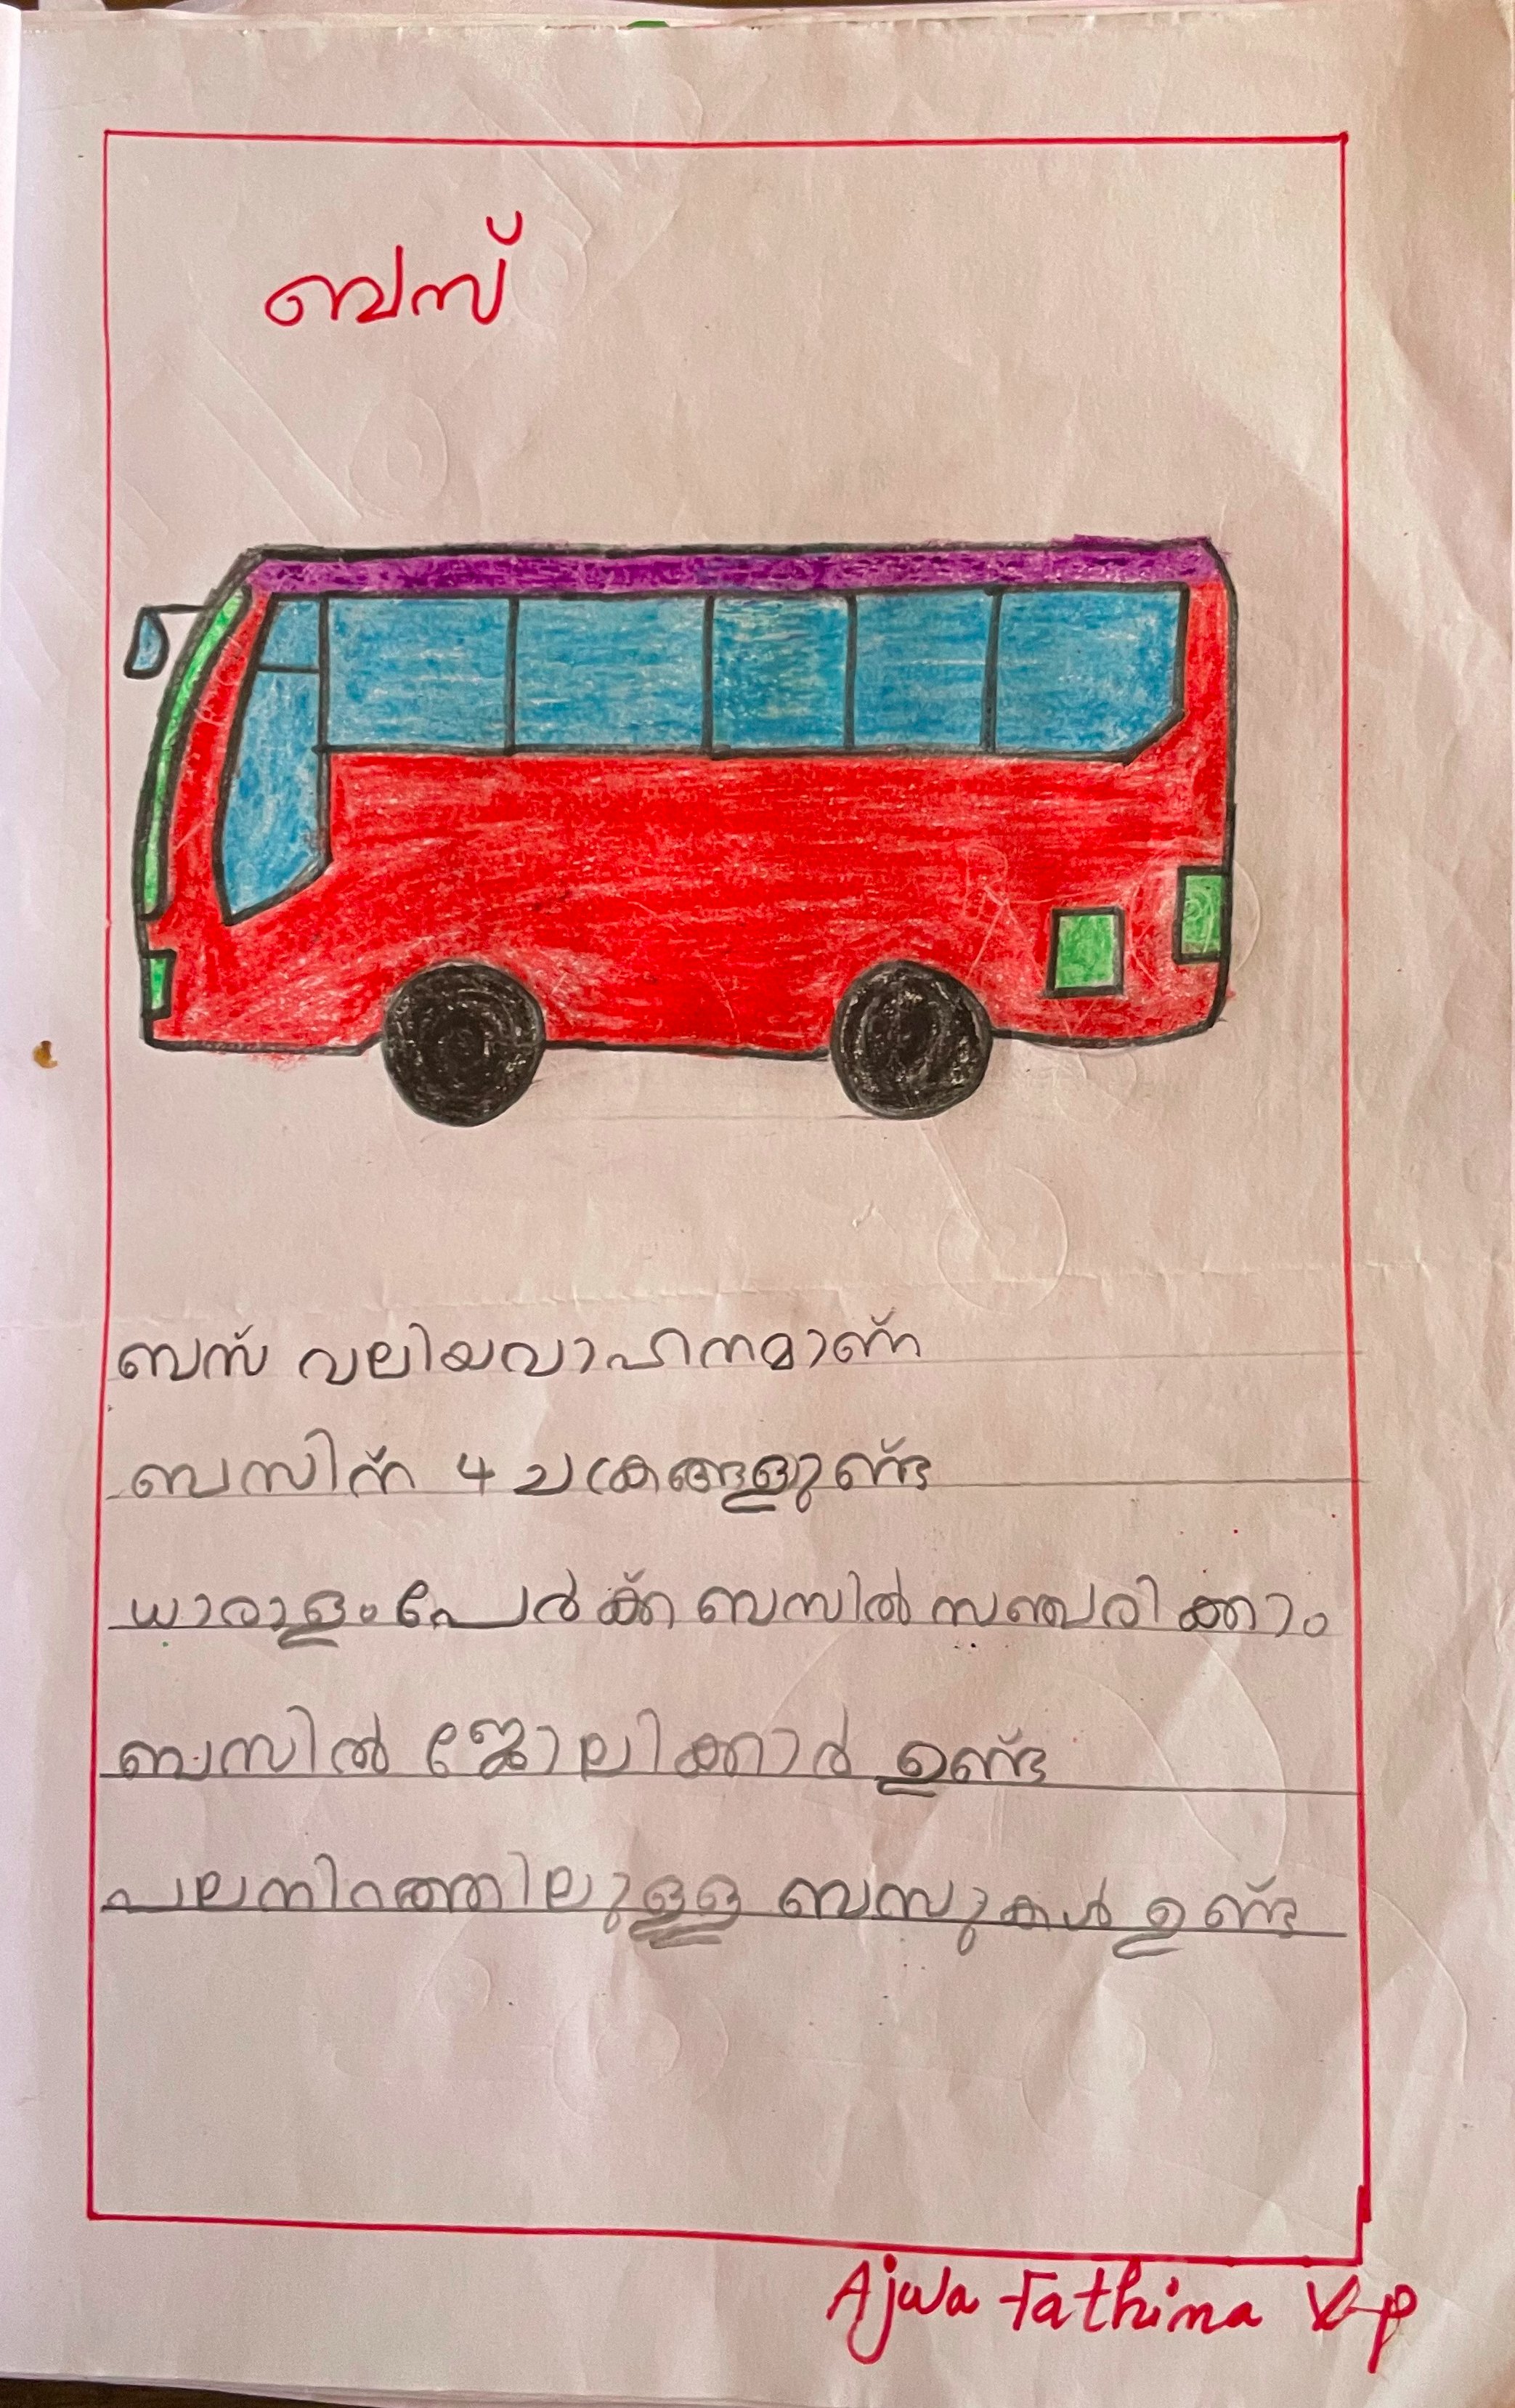 ബസ്
ബസ് വലിയവാഹനമാണ്
ബസിന് 4 ചക്രങ്ങളുണ്ട്
ധാരാളം പേർക്ക് ബസിൽ സഞ്ചരിക്കാം
ബസിൽ ജോലിക്കാർ ഉണ്ട്
പലനിറത്തിലുള്ള ബസുകൾ ഉണ്ട്
Ajwa Fathima V.P